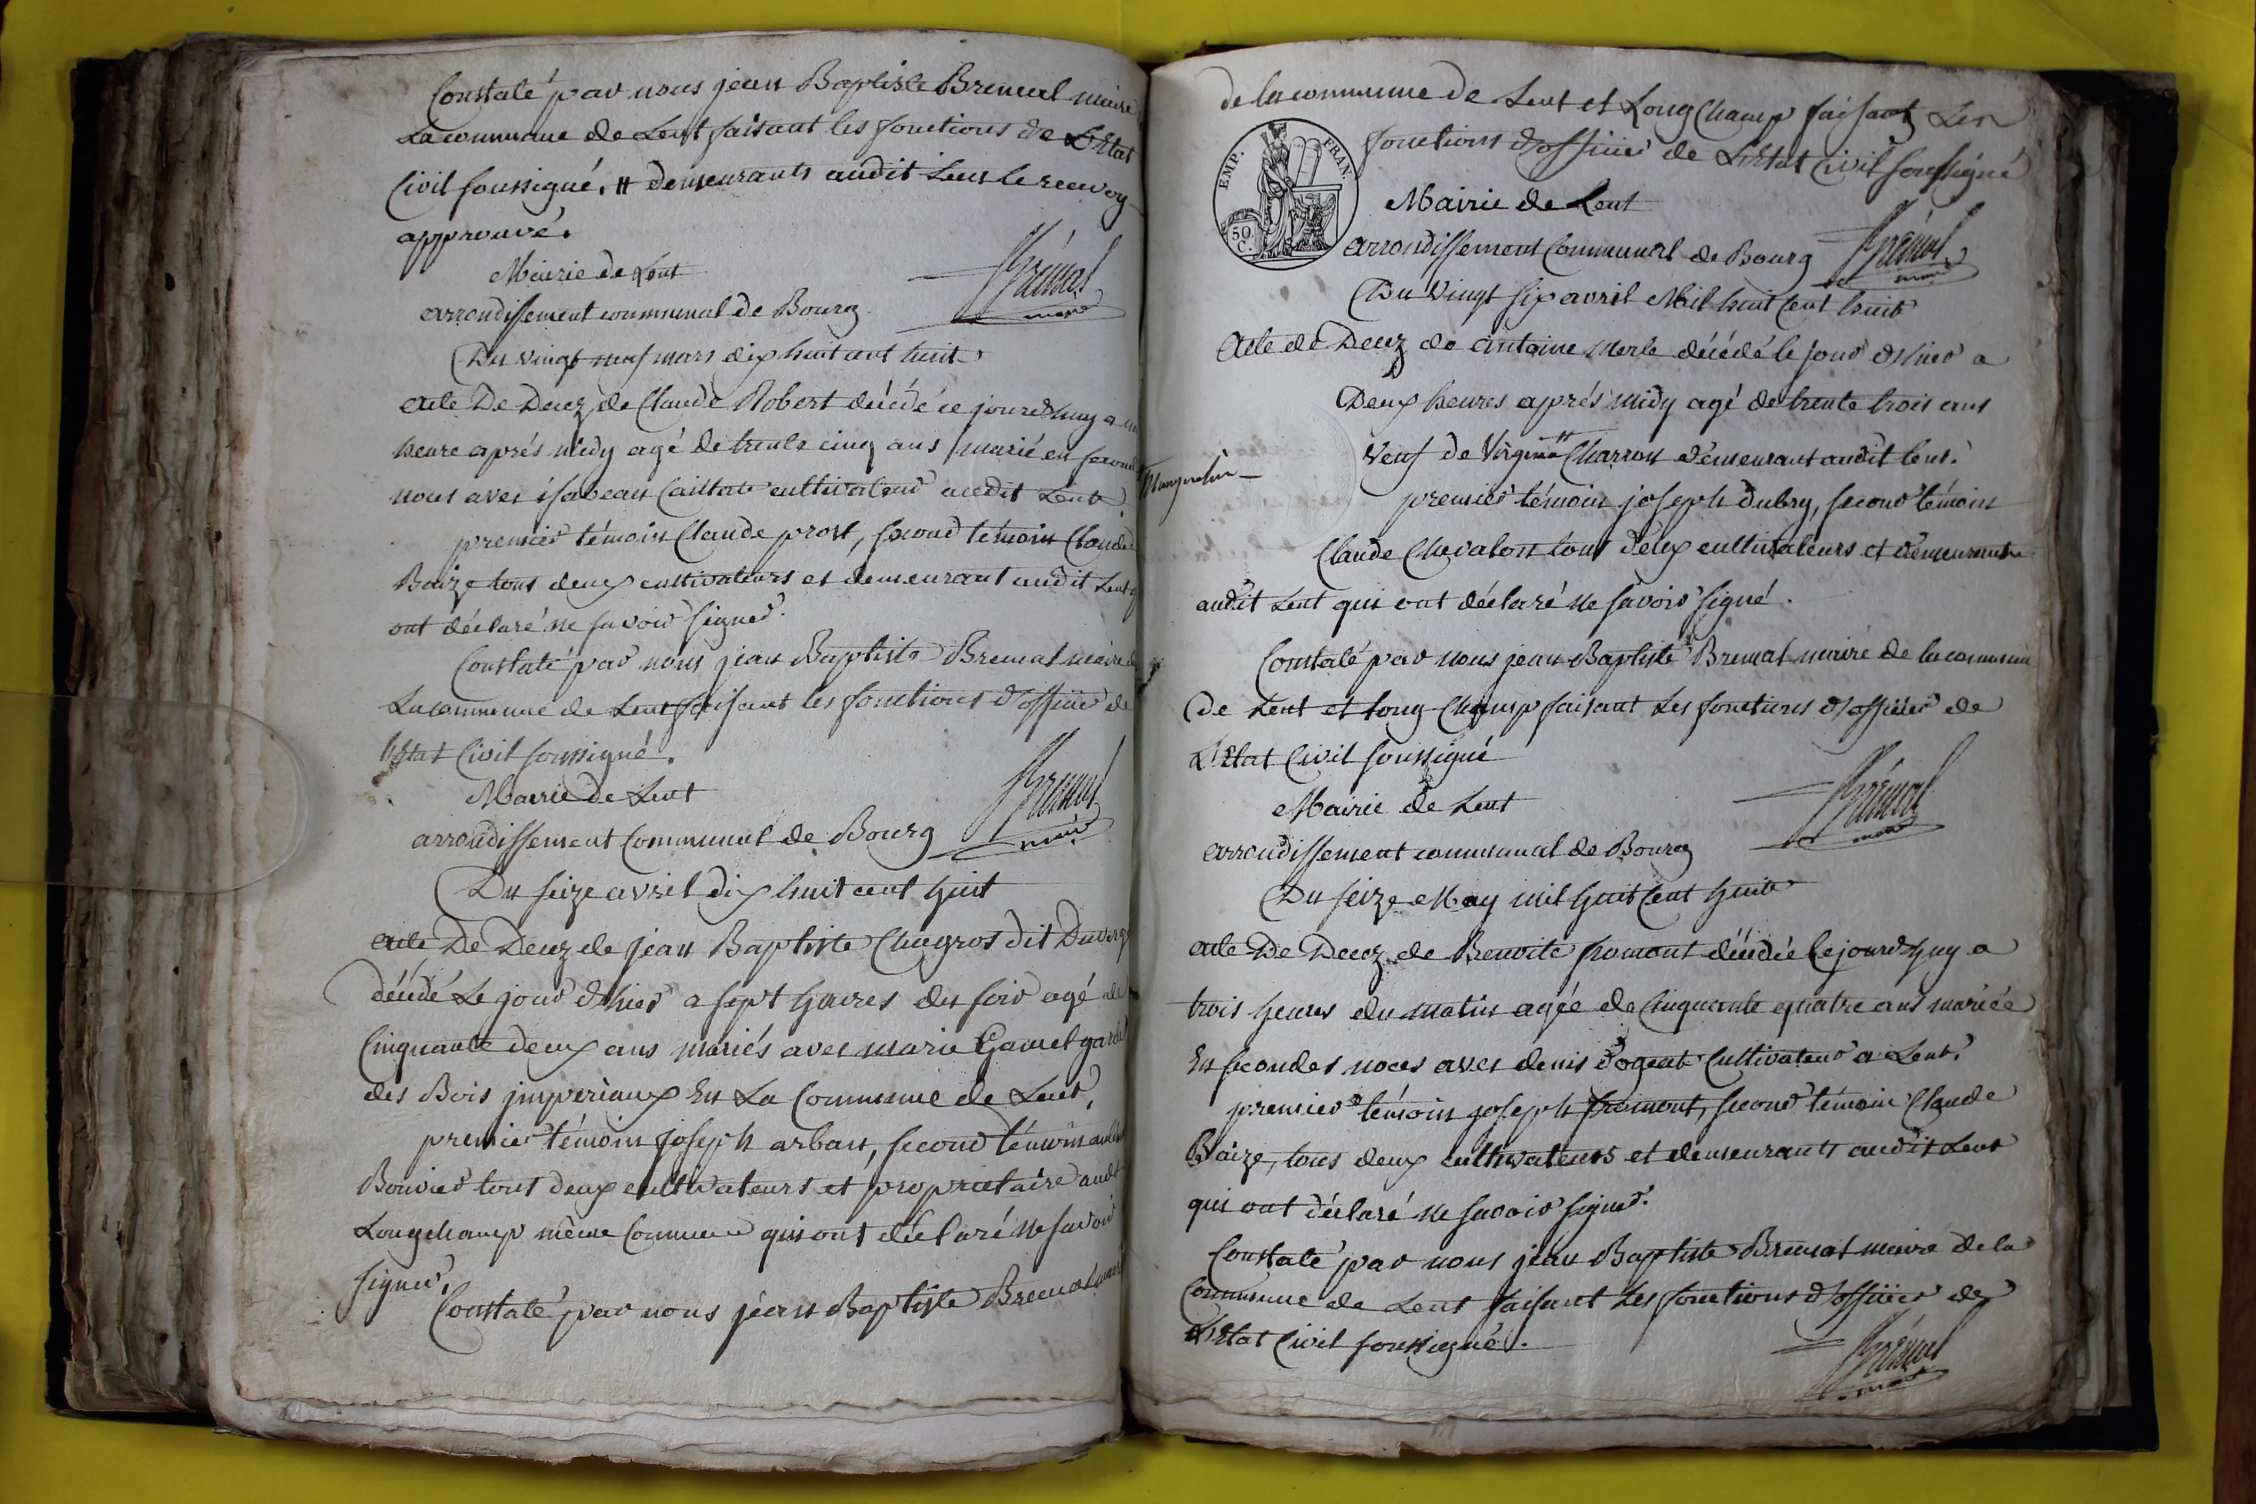 Constaté par nous jean Baptiste Bremal maire
La commune de Lent faisant les fonctions de L'Etat
Civil soussigné. # demeurants audit Lent le renvoy
approuvé.
Mairie de Lent
Brémal
maire
arrondissement communal de Bourg
Du vingt neuf mars dix huit cent huit
acte De Decez de Claude Robert décédé ce jourd'huy a
heure aprés midy agé de trente cinq ans marié en second
noces avec isabeau cultivateur audit Lent.
premier témoin Claude prost, second témoin Claude
Baize tous deux cultivateurs et demeurant audit Lent
ont déclaré ne savoir signer.
Constaté par nous jean Baptiste Bremal maire de
La commune de Lent faisant les fonctions d'officier de
l'Etat Civil soussigné.
Mairie de Lent
Brémal
maire
arrondissement Communal de Bourg
Du seize avril dix huit cent huit
acte De Decez de jean Baptiste Chagros dit
décédé Le jour d'hier a sept heures du soir agé de
Cinquante deux ans mariés avec marie Gamet garde
des Bois imperiaux En La Commune de Lent,
premier témoin joseph arban, second témoin
Bouvier tout deux cultivateurs et proprietaire audit
Longchamp même Commune qui ont déclaré ne savoir
signer.
Constaté par nous jean Baptiste Bremal maire
de la commune de Lent et Long Champ faisant Les
fonctions d'officier de L'Etat Civil soussigné
EMP. FRAN.
50 C.
Mairie de Lent
Brémal
maire
arrondissement Communal de Bourg
Du vingt six avril Mil huit Cent huit
Acte de Decez de antoine Merle décédé le jour d'hier a
Deux heures aprés midy agé de trente trois ans
Veuf de Virginie # Charron demeurant audit Lent.
premier témoin joseph dubry, second témoin
Claude Chevalon tout deux cultivateurs et demeurant
audit Lent qui ont déclaré ne savoir signé.
Constaté par nous jean Baptiste Bremal maire de la commune
De Lent et Long Champ faisant Les fonctions d'officier de
L'Etat Civil soussigné
Mairie de Lent
Brémal
maire
arrondissement communal de Bourg
Du seize May mil huit Cent huit
acte De Decez de Benoite fromont décédée Cejourd'huy a
trois heures du matin agée de Cinquante quatre ans mariée
En secondes noces avec denis dogeat Cultivateur a Lent.
premier témoin joseph fromont, second témoin Claude
Baize, tous deux cultivateurs et demeurants audit Lent
qui ont déclaré ne savoir signer.
Constaté par nous jean Baptiste Bremal maire de la
Commune de Lent faisant Les fonctions d'officier de
L'Etat Civil soussigné.
Brémal
maire